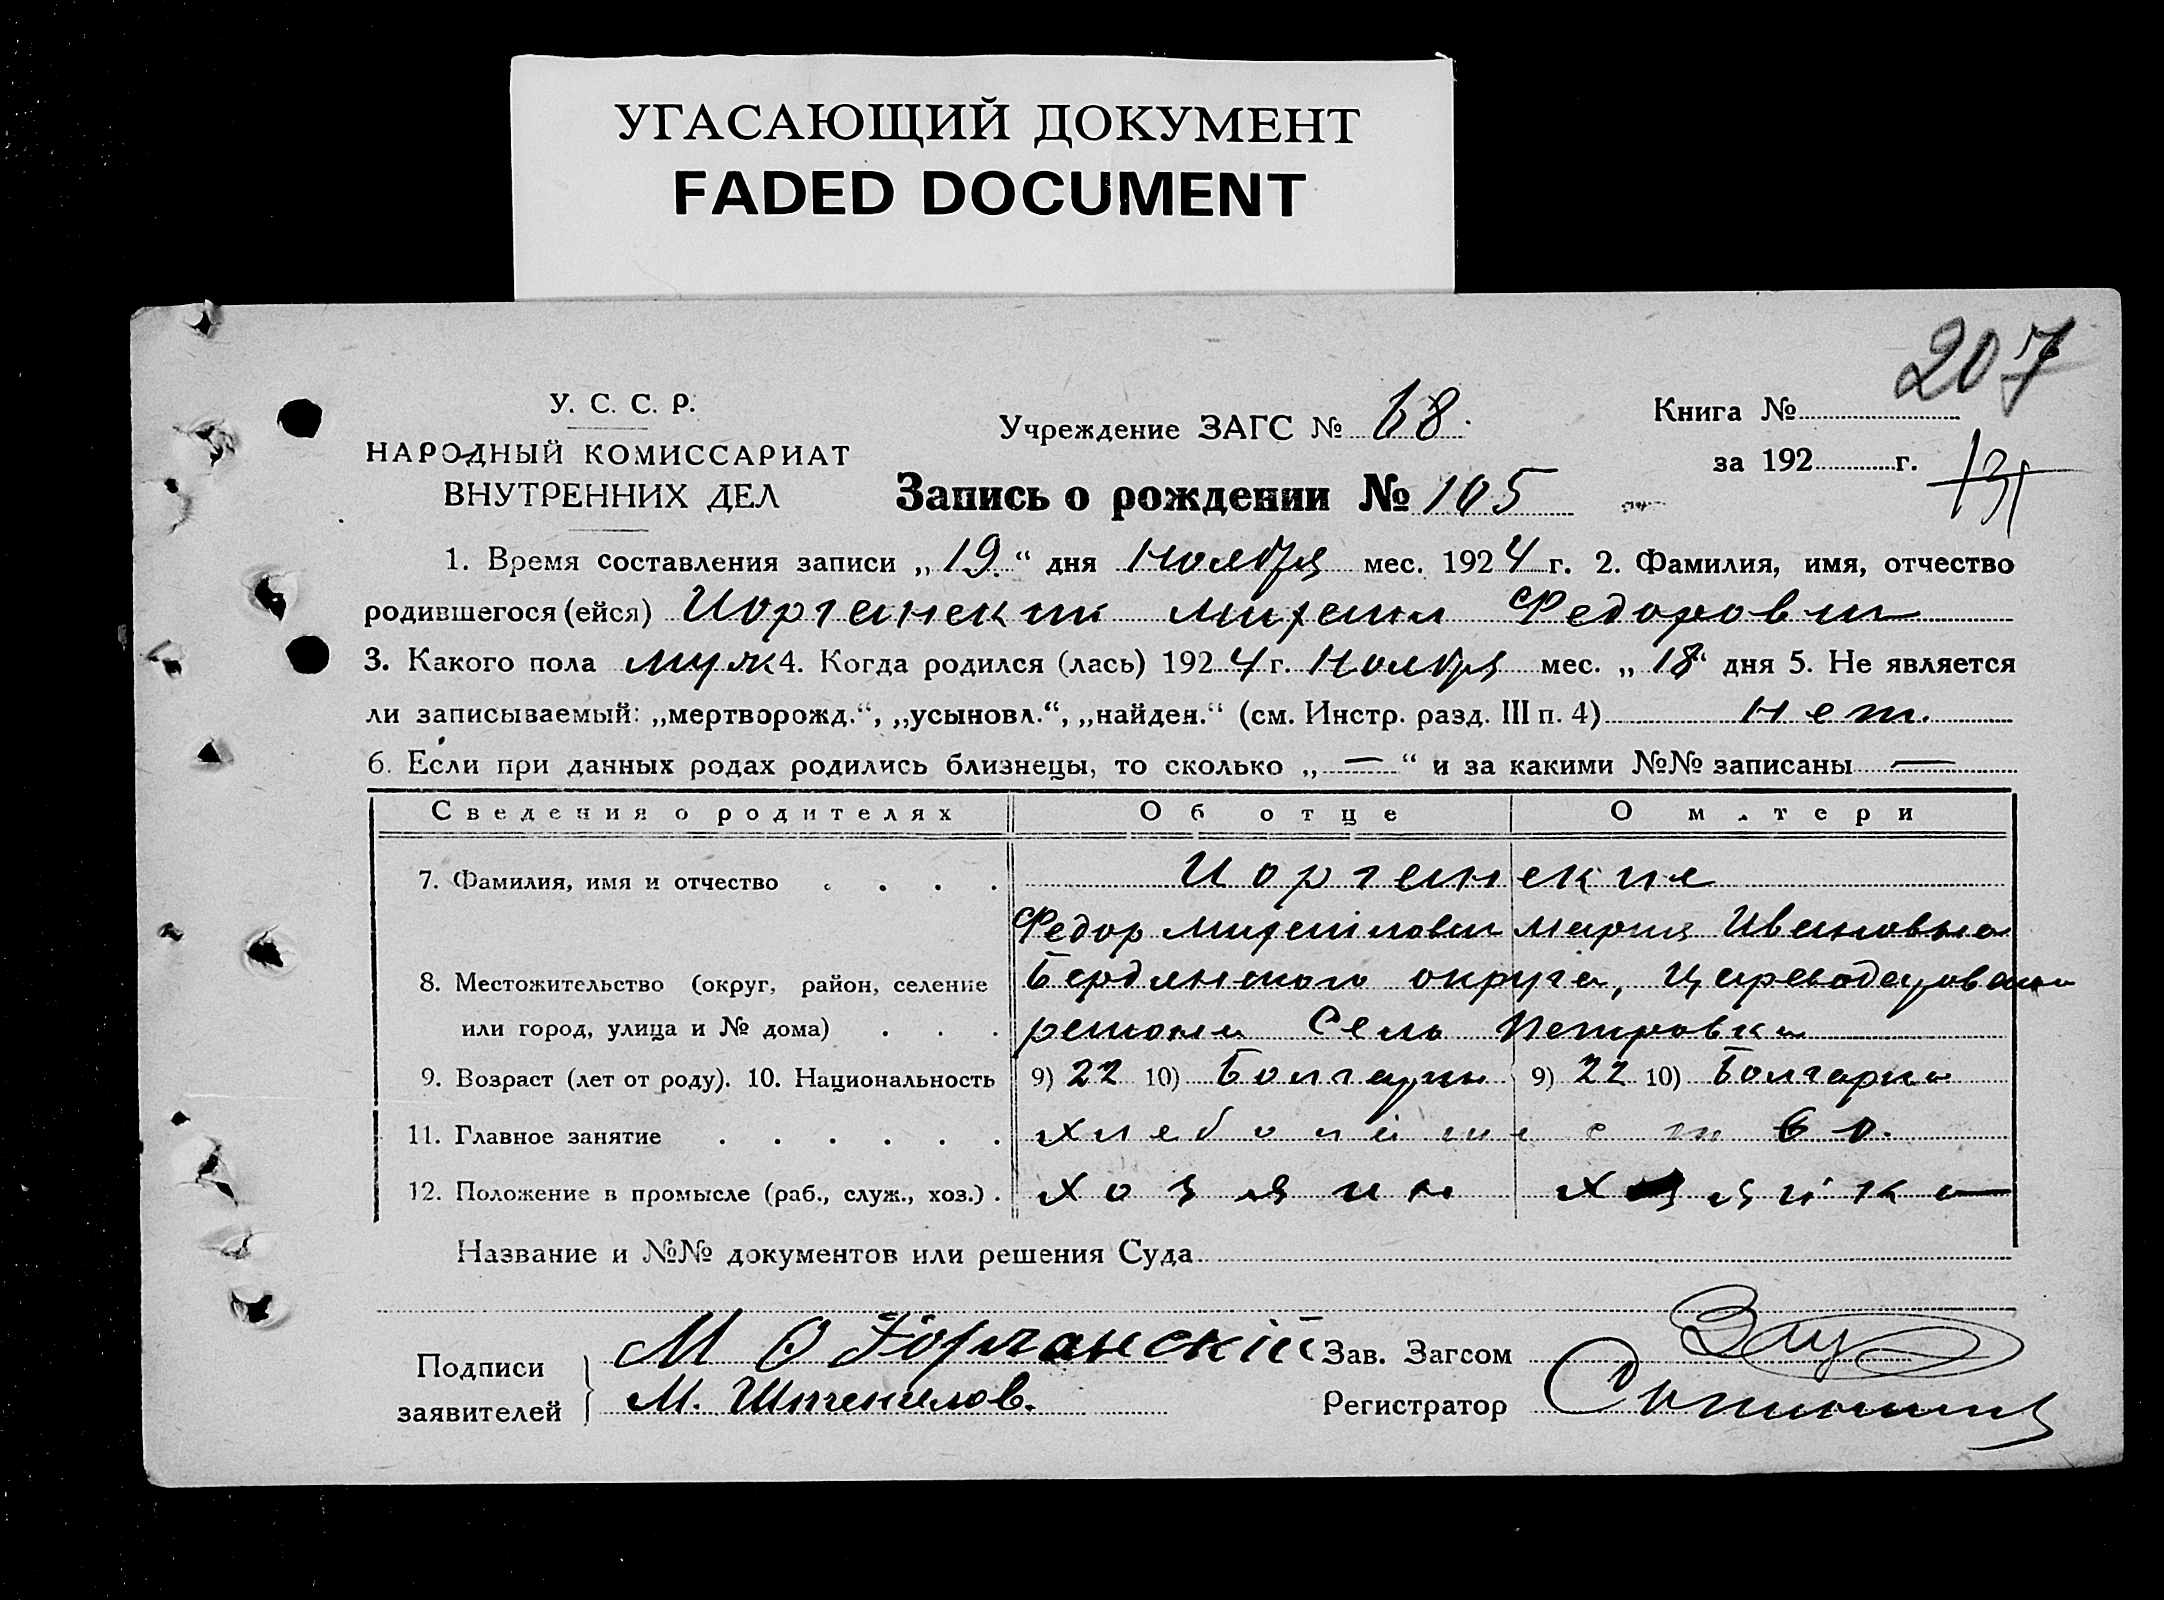 УГАСАЮЩИЙ ДОКУМЕНТ
FADED DOCUMENT
207
У. С. С. Р.
НАРОДНЫЙ КОМИССАРИАТ
ВНУТРЕННИХ ДЕЛ
Учреждение ЗАГС № 68.
Книга №
за 192 г.
Запись о рождении № 105
1. Время составления записи „19.“ дня Ноября мес. 1924 г. 2. Фамилия, имя, отчество
родившегося (ейся) Иорганский Михаил Федорович
3. Какого пола муж 4. Когда родился (лась) 1924 г. Ноября мес. „18“ дня 5. Не является
ли записываемый: „мертворожд.“, „усыновл.“, „найден.“ (см. Инстр. разд. III п. 4) нет.
6. Если при данных родах родились близнецы, то сколько „—“ и за какими №№ записаны —
Сведения о родителях Об отце О матери
7. Фамилия, имя и отчество . . . . Иорганские
Федор Михайлович Мария Ивановна
8. Местожительство (округ, район, селение Бердянского округа,
или город, улица и № дома) . . . района Село Петровка
9. Возраст (лет от роду). 10. Национальность 9) 22 10) Болгарин 9) 22 10) Болгарка
11. Главное занятие . . . . . . хлебопашество.
12. Положение в промысле (раб., служ., хоз.) . хозяин хозяйка
Название и №№ документов или решения Суда
Подписи заявителей
М Ф Іорганскій
М.
Зав. Загсом
Регистратор